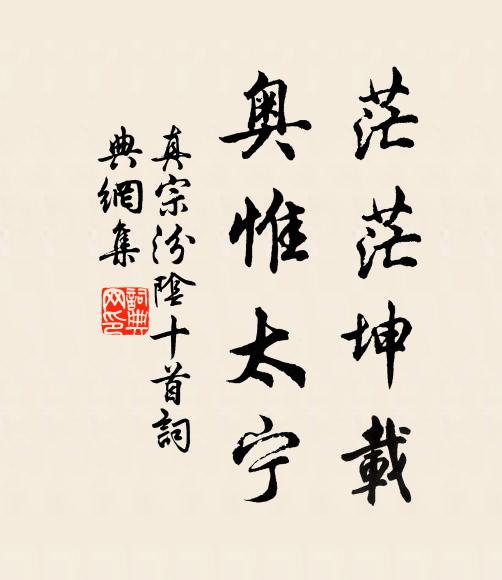 茫茫坤載
奥惟太宁
真宗汾陰十首詞
典網集
詞典网印